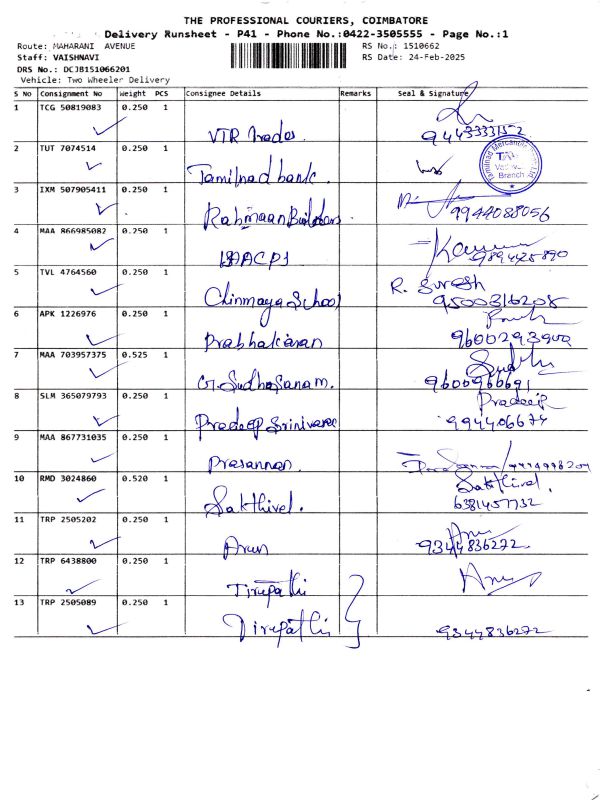 THE PROFESSIONAL COURIERS, COIMBATORE
Delivery Runsheet - P41 - Phone No.:0422-3505555 - Page No.:1
Route: MAHARANI AVENUE RS No.: 1510662
Staff: VAISHNAVI RS Date: 24-Feb-2025
DRS No.: DCJB151066201
Vehicle: Two Wheeler Delivery
S No Consignment No Weight PCS Consignee Details Remarks Seal & Signature
1 TCG 50819083 0.250 1 VTR Trades 9443333152
2 TUT 7074514 0.250 1 Tamilnad bank
Tamilnad Mercantile
Branch
3 IXM 507905411 0.250 1 Rahmaan Builders 9944088056
4 MAA 866985082 0.250 1
5 TVL 4764560 0.250 1 Chinmaya School R. Suresh
9500316208
6 APK 1226976 0.250 1 Prabhakaran 9600293900
7 MAA 703957375 0.525 1 G. Sudhasanam. Sudhu
9600960691
8 SLM 365079793 0.250 1 Pradeep Srinivasan Pradeep
994406674
9 MAA 867731035 0.250 1 Prasannan
10 RMD 3024860 0.520 1 Sakthivel. Sakthivel.
6381457732
11 TRP 2505202 0.250 1 Arun 9344836272
12 TRP 6438800 0.250 1 Tirupathi
13 TRP 2505089 0.250 1 Tirupathi 9344836272